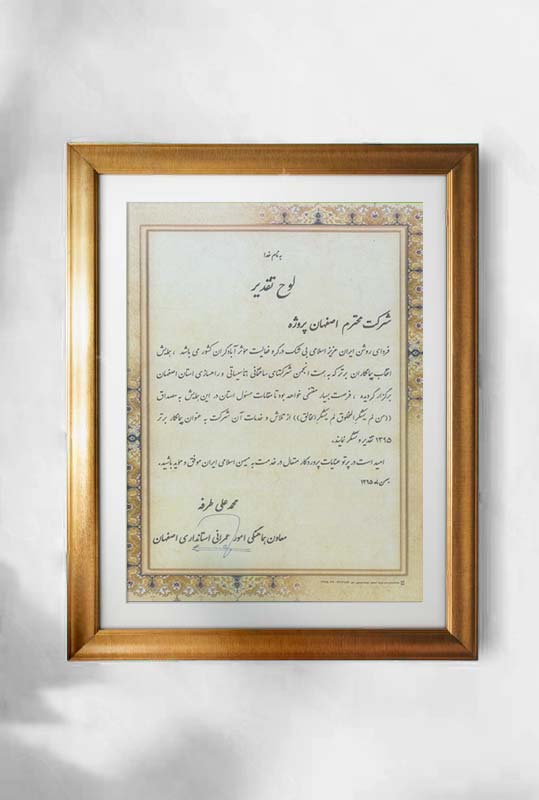 به نام خدا
لوح تقدیر
شرکت محترم اصفهان پروژه
فردای روشن ایران عزیز اسلامی بی شک در گرو فعالیت موثر آبادگران کشور می باشد ، همایش
انتخاب پیمانکاران برتر که به همت انجمن شرکتهای ساختمانی ،تاسیساتی و راهسازی استان اصفهان
برگزار گردیده ، فرصت بسیار مغتنمی خواهد بود تا مقامات مسئول استان در این همایش به مصداق
((من لم یشکر المخلوق لم یشکر الخالق)) از تلاش و خدمات آن شرکت به عنوان پیمانکار برتر
۱۳۹۵ تقدیر و تشکر نمایند.
امید است در پرتو عنایات پروردگار متعال در خدمت به میهن اسلامی ایران موفق و موید باشید.
بهمن ماه ۱۳۹۵
محمد علی طرفه
معاون هماهنگی امور عمرانی استانداری اصفهان